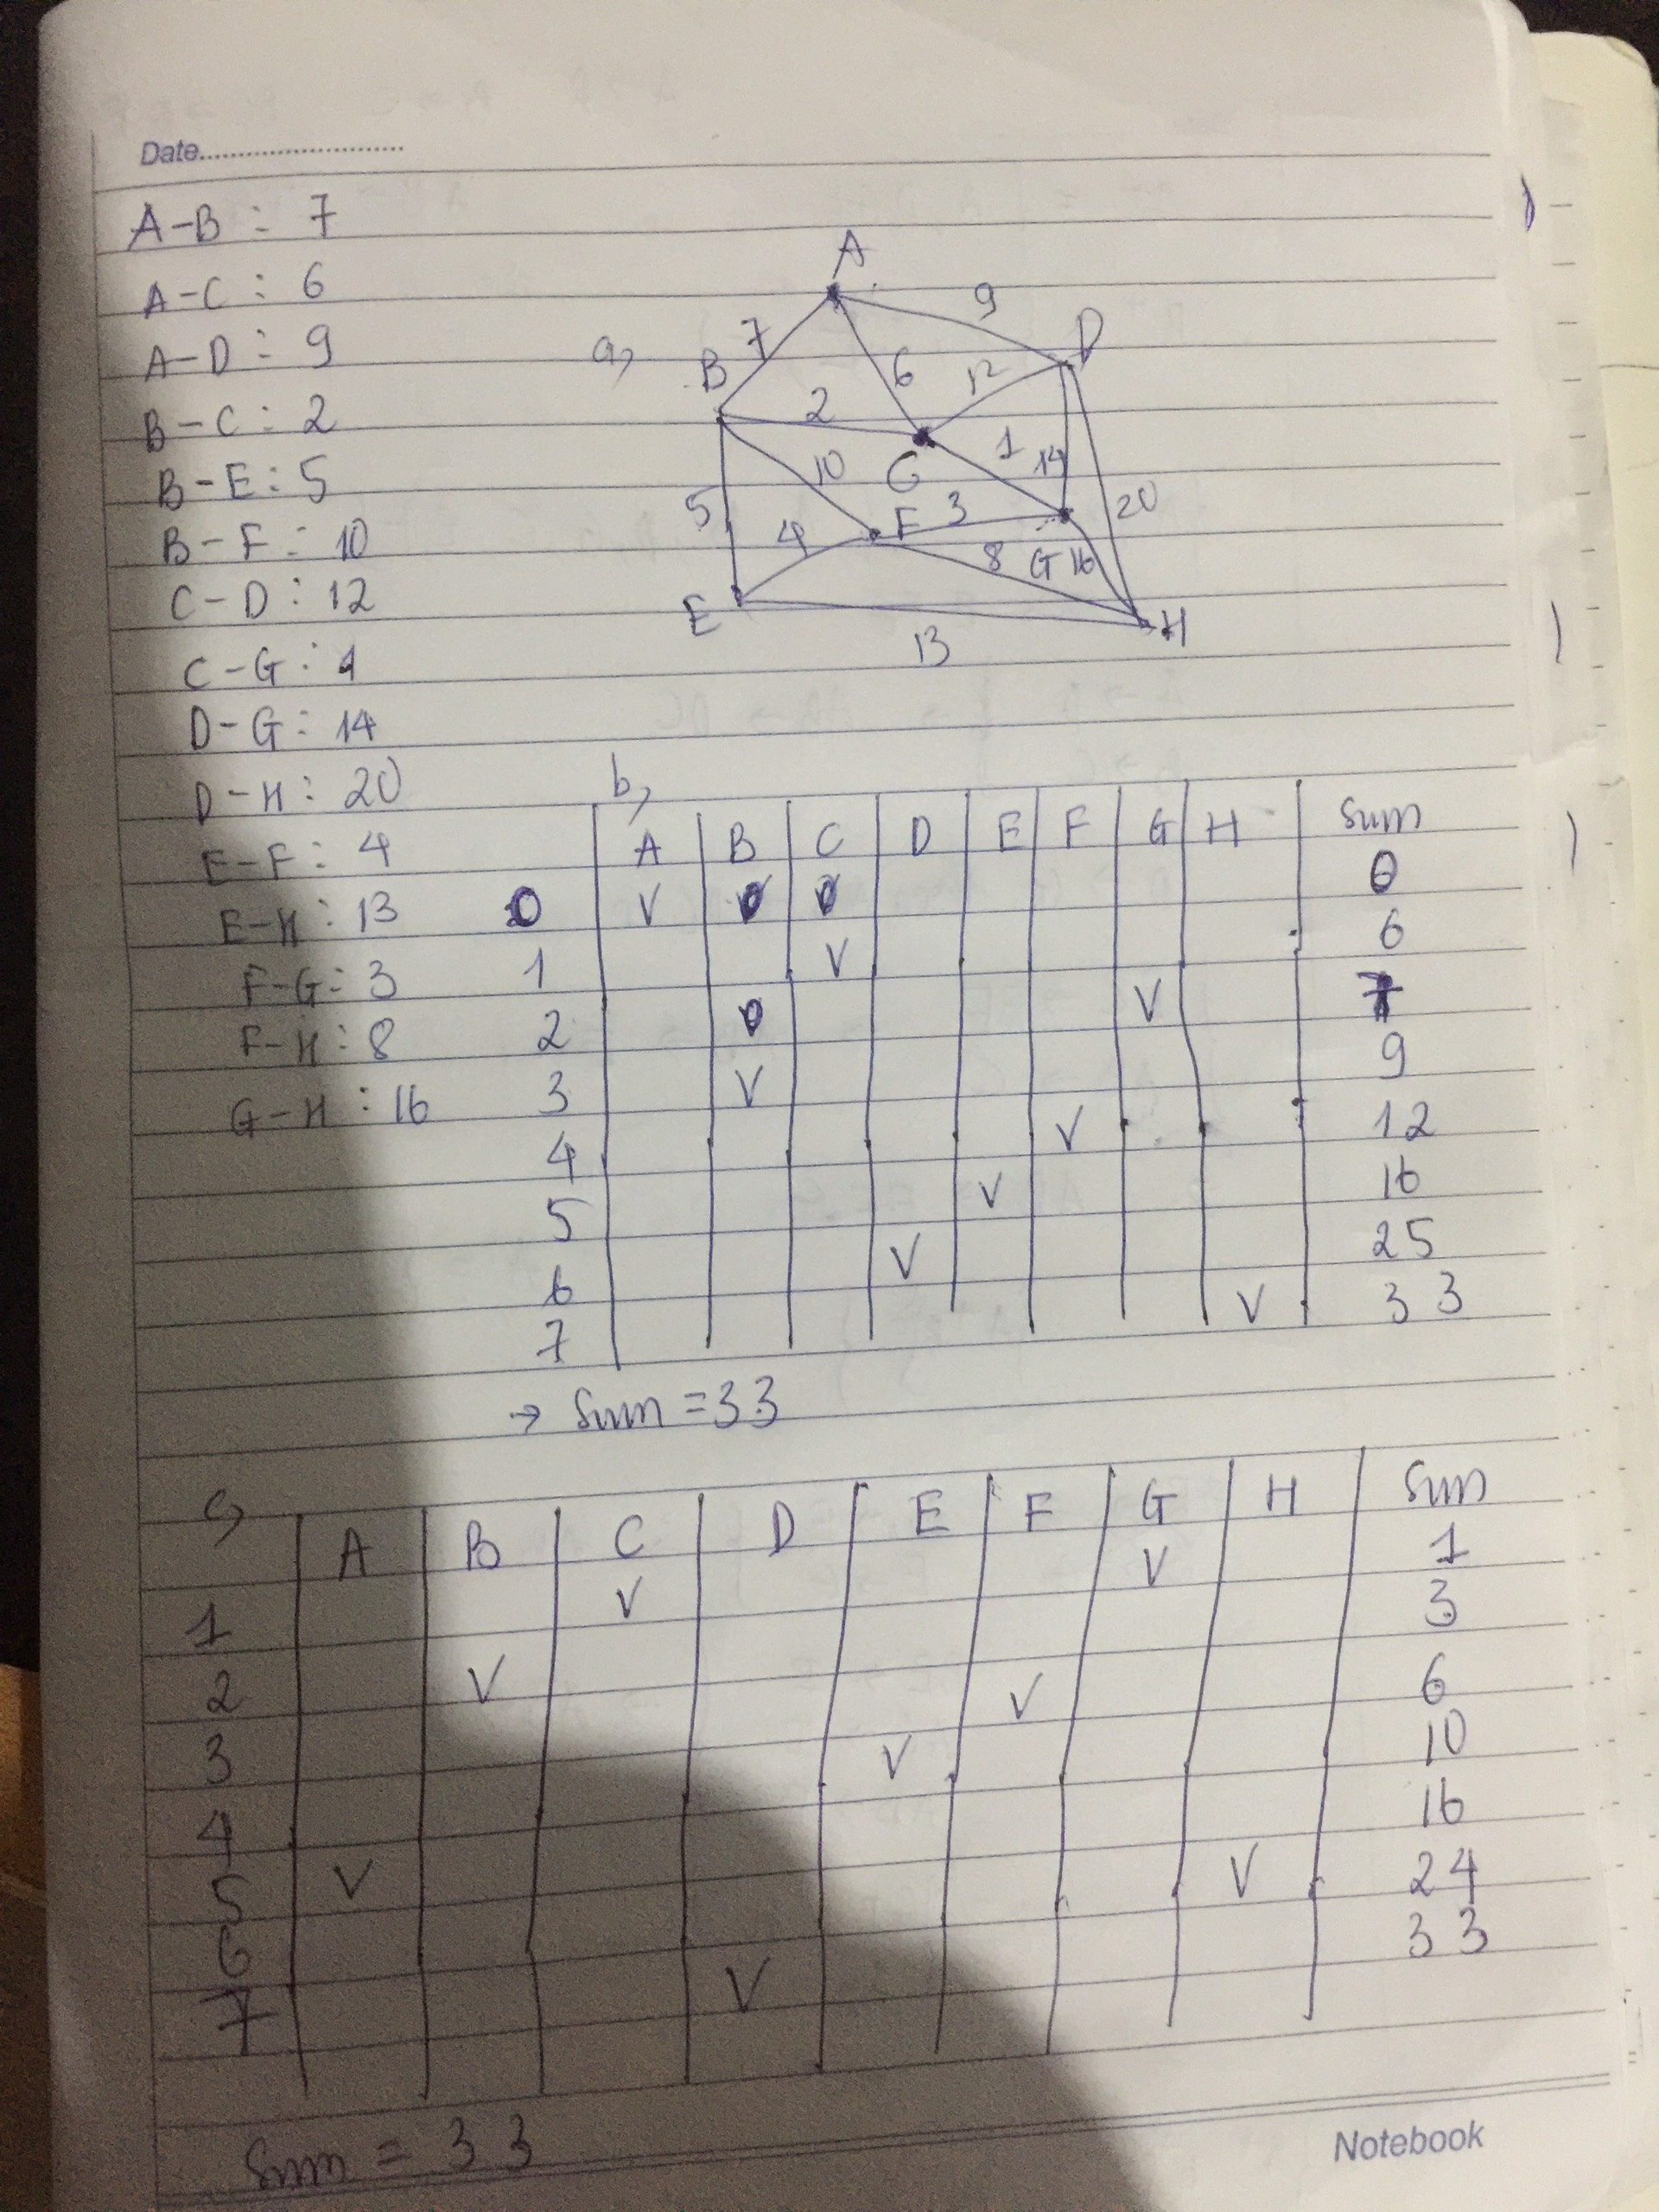 Date
A-B: 7
A-C: 6
A-D: 9
B-C: 2
B-E: 5
B-F: 10
C-D: 12
C-G: 1
D-G: 14
D-H: 20
E-F: 4
E-H: 13
F-G: 3
F-H: 8
G-H: 16
a,
A
9
7
D
B
6
12
2
1
14
10
C
5
F
3
20
4
8
G
16
E
H
13
b,
A B C D E F G H Sum
0 V 0
1 V 6
2 V 7
3 V 9
4 V 12
5 V 16
6 V 25
7 V 33
→ Sum = 33
c,
A B C D E F G H Sum
1 V V 1
2 V 3
3 V 6
4 V 10
5 V 16
6 V 24
7 V 33
Sum = 33
Notebook